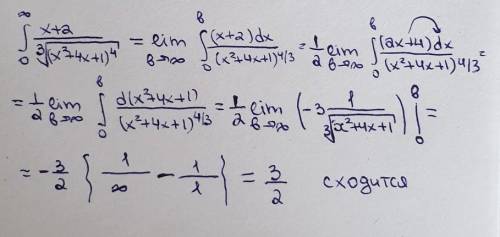 ∫₀^∞ x+2 / ∛(x²+4x+1)⁴ = lim_{в→∞} ∫₀^в (x+2)dx / (x²+4x+1)^{4/3} = 1/2 lim_{в→∞} ∫₀^в (2x+4)dx / (x²+4x+1)^{4/3} =
= 1/2 lim_{в→∞} ∫₀^в d(x²+4x+1) / (x²+4x+1)^{4/3} = 1/2 lim_{в→∞} (-3 1/∛(x²+4x+1)) |₀^в =
= -3/2 { 1/∞ - 1/1 } = 3/2 сходится